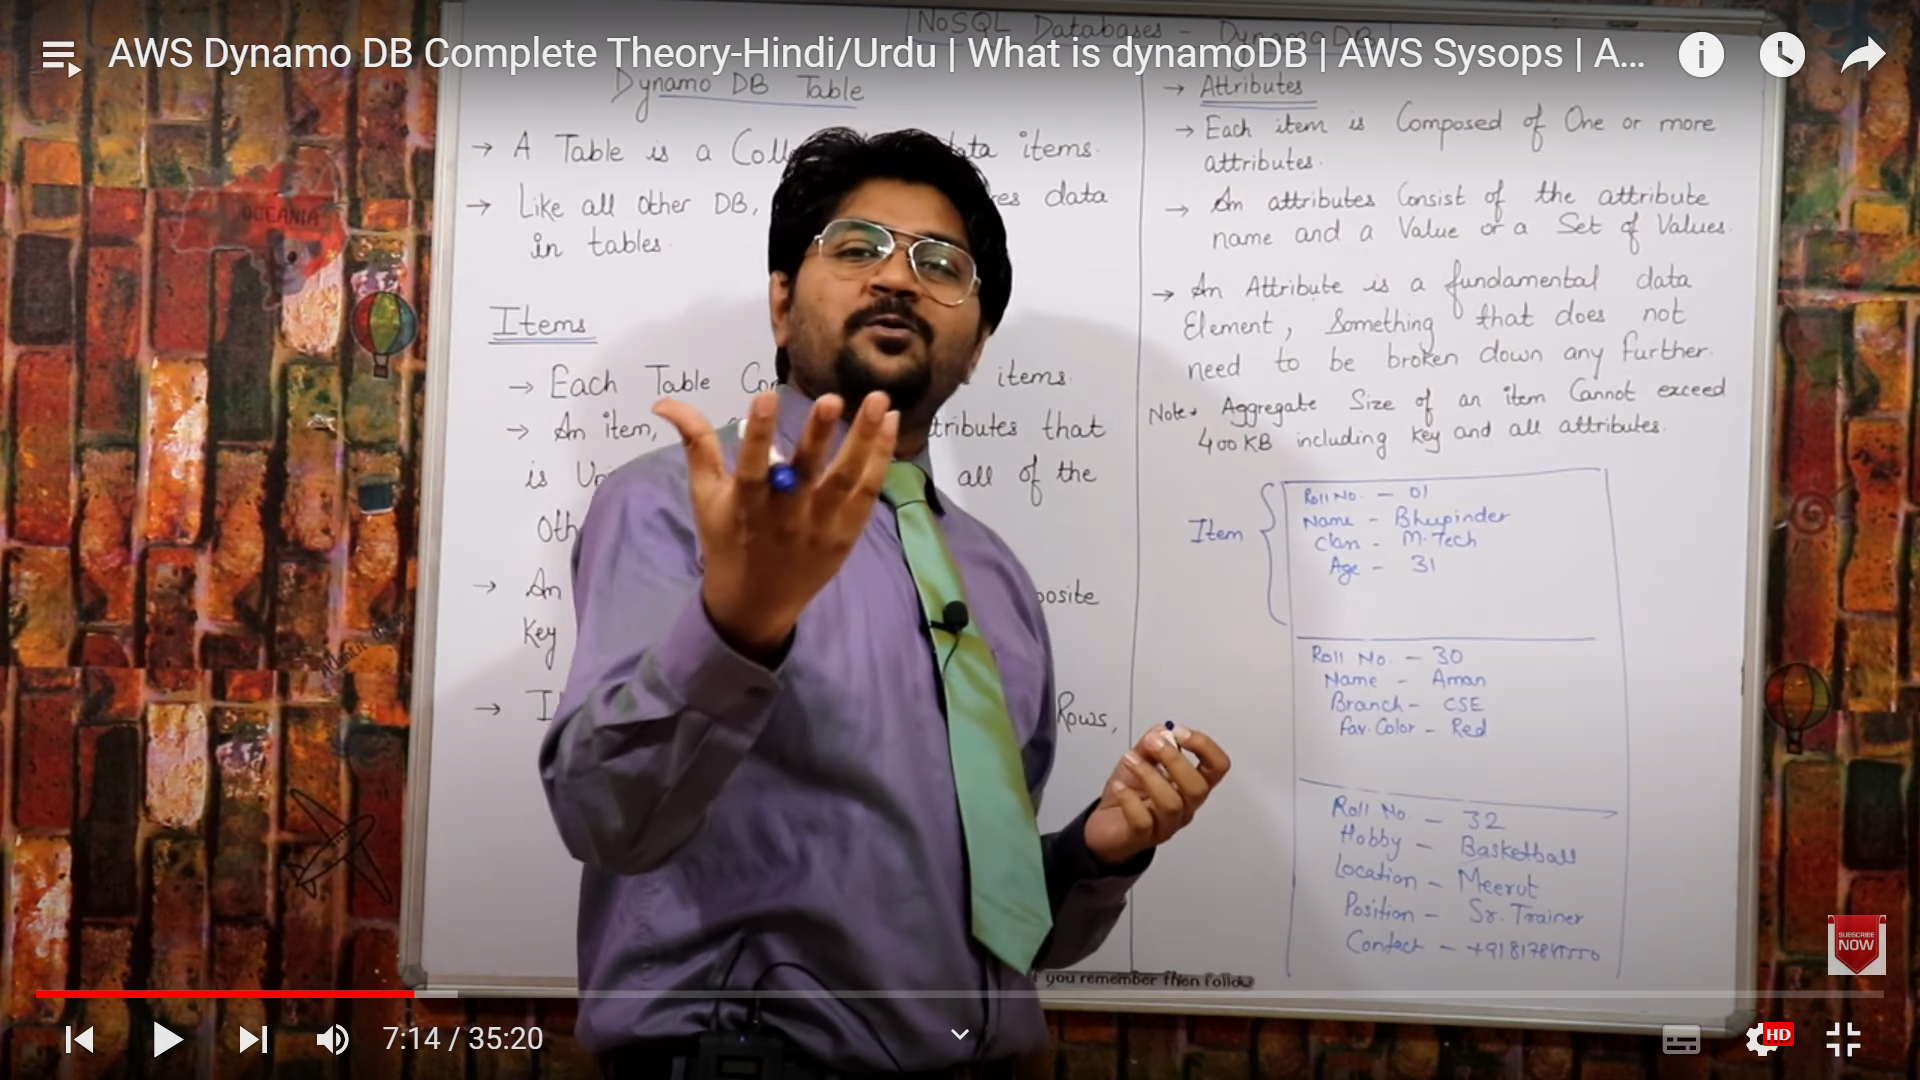 AWS Dynamo DB Complete Theory-Hindi/Urdu | What is dynamoDB | AWS Sysops | A...
NoSQL Databases - DynamoDB
Dynamo DB Table
→ A Table is a Coll data items.
→ Like all other DB, res data
in tables.
Items
→ Each Table Con items.
→ An item, tributes that
is Un all of the
Oth
→ An posite
Key
→ I Rows,
→ Attributes
→ Each item is Composed of One or more
attributes.
→ An attributes Consist of the attribute
name and a Value or a Set of Values.
→ An Attribute is a fundamental data
Element, Something that does not
need to be broken down any further.
Note: Aggregate Size of an item Cannot exceed
400 KB including key and all attributes.
Item
Roll No. - 01
Name - Bhupinder
Class - M.Tech
Age - 31
Roll No. - 30
Name - Aman
Branch - CSE
Fav. Color - Red
Roll No. - 32
Hobby - Basketball
Location - Meerut
Position - Sr. Trainer
Contact -
OCEANIA
you remember then follow
SUBSCRIBE
NOW
7:14 / 35:20
HD